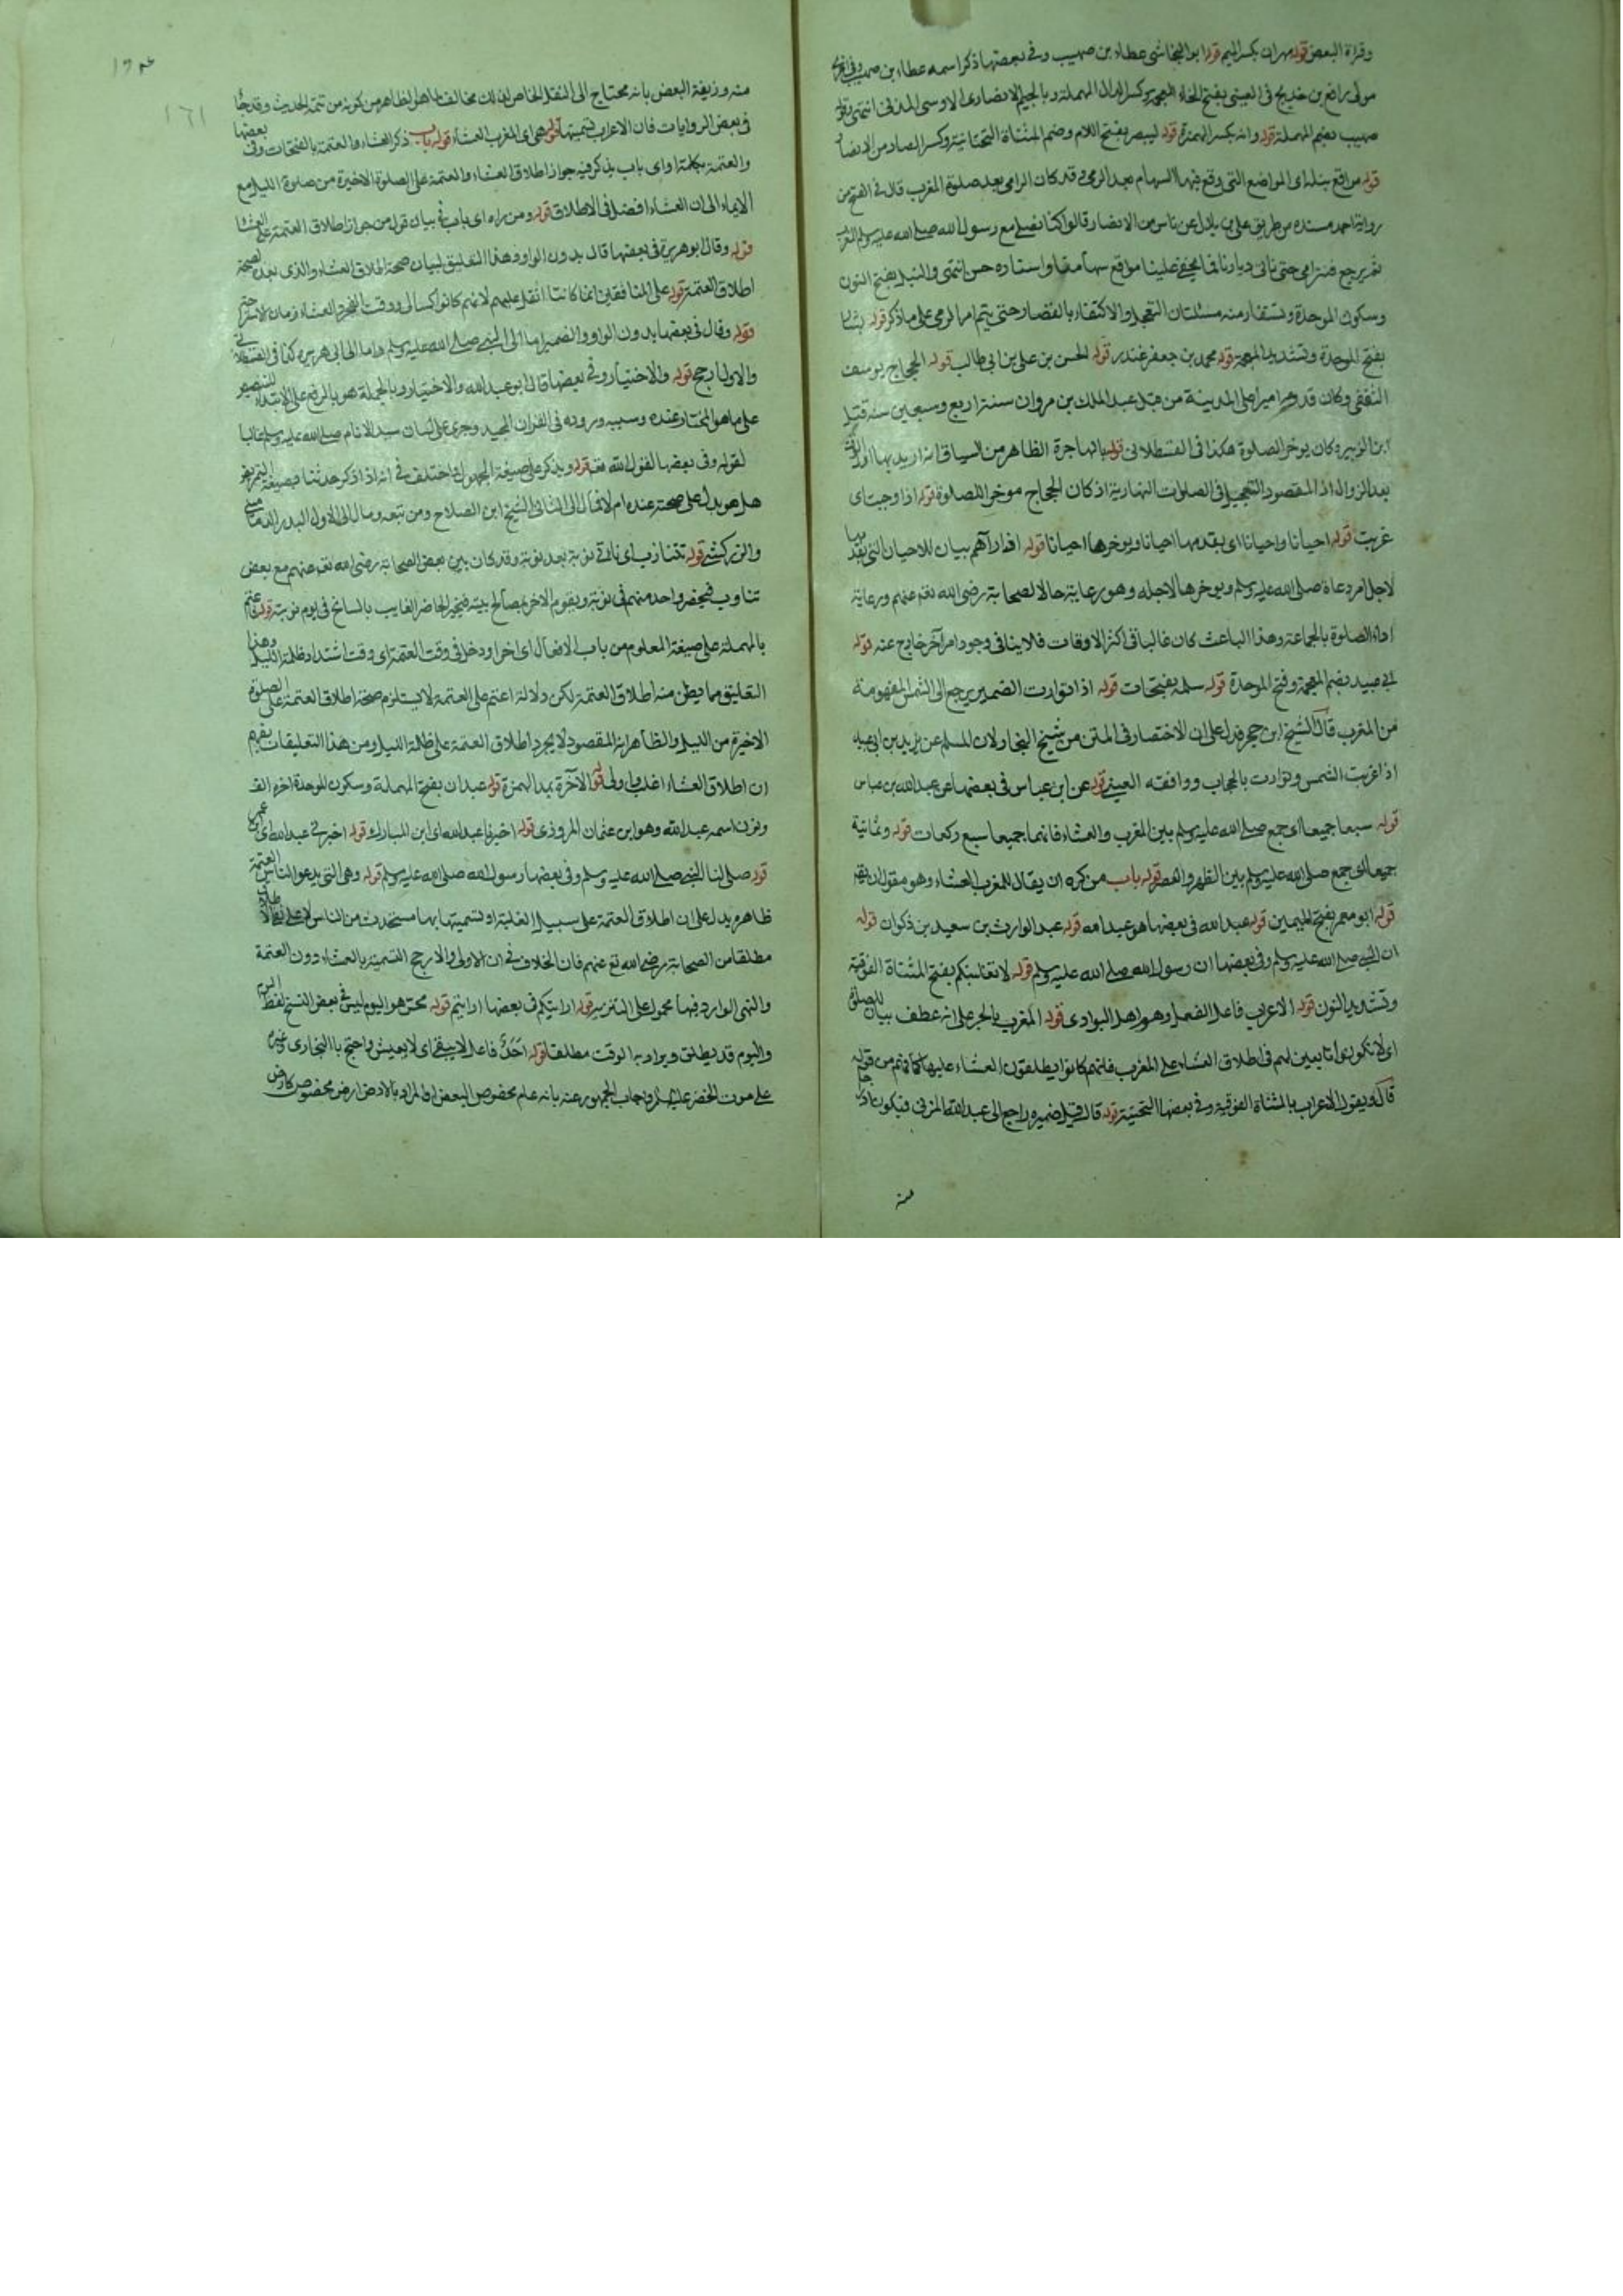 وقراءة البعض قوله مهران بكسر الميم قوله ابو النجاشى عطاء بن صهيب وفى بعضها ذكر اسمه عطاء بن صهيب
مولى رافع بن خديج فى العينى بفتح الخاء المعجمة وكسر الدال المهملة وبالجيم الانصارى الاوسى المدنى انتهى قوله
صهيب بضم المهملة قوله وانه بكسر الهمزة قوله ليبصر بفتح اللام وضم المثناة التحتانية وكسر الصاد من الابصار
قوله مواقع نبله اى المواضع التى وقع فيها السهام بعد الرمى وقد كان الرامى بعد صلوة المغرب قال فى الفتح من
رواية احمد مسنده من طريق على بن بلال عن ناس من الانصار قالوا كنا نصلى مع رسول الله صلى الله عليه وسلم المغرب
ثم نرجع فنترامى حتى نأتى ديارنا فما يخفى علينا مواقع سهامنا واسناده حسن انتهى والنبل بفتح النون
وسكون الموحدة ويستفاد منه مسئلتان التعجيل والاكتفاء بالقصار حتى يتم امر الرمى على ما ذكر قوله بشار
بفتح الموحدة وتشديد المعجمة قوله محمد بن جعفر غندر قوله الحسن بن على بن ابى طالب قوله الحجاج بن يوسف
الثقفى وكان قدومه اميرا على المدينة من قبل عبد الملك بن مروان سنة اربع وسبعين سنة قتل
ابن الزبير وكان يوخر الصلوة هكذا فى القسطلانى قوله بالهاجرة الظاهر من السياق انه اريد بها اول الوقت
بعد الزوال اذ المقصود التعجيل فى الصلوات النهارية اذ كان الحجاج موخر اللصلوة قوله اذا وجبت اى
غربت قوله احيانا واحيانا اى يقدمها احيانا ويوخرها احيانا قوله اذا رآهم بيان للاحيان التى يقدمها
لاجل امر دعاه صلى الله عليه وسلم ويوخرها لاجله وهو رعاية حال الصحابة رضى الله تع عنهم ورعاية
اداء الصلوة بالجماعة وهذا الباعث كان غالبا فى اكثر الاوقات فلا ينافى وجود امر آخر خارج عنه قوله
ابى عبيد بضم المهملة وفتح الموحدة قوله سلمة بفتحات قوله اذا توارت الضمير يرجع الى الشمس المفهومة
من المغرب قال الشيخ ابن حجر فدل على ان الاختصار فى المتن من شيخ البخارى لان لمسلم عن يزيد بن ابى عبيد
اذا غربت الشمس وتوارت بالحجاب ووافقه العينى قوله عن ابن عباس فى بعضها عن عبد الله بن عباس
قوله سبعا جميعا اى جمع صلى الله عليه وسلم بين المغرب والعشاء فانهما جميعا سبع ركعات قوله وثمانية
جميعا اى جمع صلى الله عليه وسلم بين الظهر والعصر قوله باب من كره ان يقال للمغرب العشاء وهو مقول ان يقال
قوله ابو معمر بفتح الميمين قوله عبد الله فى بعضها هو عبد الله قوله عبد الوارث بن سعيد بن ذكوان قوله
ان النبى صلى الله عليه وسلم وفى بعضها ان رسول الله صلى الله عليه وسلم قوله لا تغلبنكم بفتح المثناة الفوقية
وتشديد النون قوله الاعراب فاعل الفعل وهو اهل البوادى قوله المغرب بالجر على انه عطف بيان للصلوة
اى لا تكونوا تابعين لهم فى اطلاق العشاء على المغرب فانهم كانوا يطلقون العشاء عليها كما فهم من قوله
قال ويقول الاعراب بالمثناة الفوقية وفى بعضها التحتية قوله قال قيل ضميره راجع الى عبد الله المزنى فيكون
منه
١٦١
منه وزيفه البعض بانه محتاج الى النقل الخاص لذلك مخالف لما هو الظاهر من كونه من تتمة الحديث وقد جاء
فى بعض الروايات فان الاعراب تسميها قوله هى اى المغرب العشاء قوله باب ذكر العشاء والعتمة بالفتحات وفى بعضها
والعتمة بكلمة او اى باب يذكر فيه جواز اطلاق العشاء والعتمة على الصلوة الاخيرة من صلوة الليل مع
الايماء الى ان العشاء افضل فى الاطلاق قوله ومن راه اى باب فى بيان قول من جواز اطلاق العتمة على العشاء
قوله وقال ابو هريرة فى بعضها قال بدون الواو وهذا التعليق لبيان صحة اطلاق العشاء والذى بعده لصحة
اطلاق العتمة قوله على المنافقين انما كانتا اثقل عليهم لانهم كانوا كسالى ووقت الفجر والعشاء زمان لاستراحة
قوله وقال فى بعضها بدون الواو والضمير اما الى النبى صلى الله عليه وسلم واما الى ابى هريره كذا فى القسطلانى
والاول ارجح قوله والاختيار وفى بعضها قال ابو عبد الله والاختيار وبالجملة هو بالرفع على الابتداء
على ما هو المختار عنده وسببه وروده فى القران المجيد وجرى على لسان سيد الانام صلى الله عليه وسلم غالبا
لقوله وفى بعضها لقول الله تعالى قوله ويذكر على صيغة المجهول اختلف فى انه اذا ذكر حديثا بصيغة التمريض
هل هو يدل على صحته عنده ام لا فمال الى الثانى الشيخ ابن الصلاح ومن تبعه ومال الى الاول البدر الدمامينى
والزركشى قوله نتناوب اى نأتى نوبة بعد نوبة وقد كان بين بعض الصحابة رضى الله تع عنهم مع بعض
تناوب فيحضر واحد منهم فى نوبة ويقوم الاخر بمصالح بيته فيخبر الحاضر الغايب بالسانح فى يوم نوبته قوله فاعتم
بالمهملة على صيغة المعلوم من باب الافعال اى اخر او دخل فى وقت العتمة اى وقت اشتداد ظلمة الليل وهذا
التعليق مما يظن منه اطلاق العتمة لكن دلالة اعتم على العتمة لا يستلزم صحة اطلاق العتمة على الصلوة
الاخيرة من الليل والظاهر انه المقصود لا مجرد اطلاق العتمة على ظلمة الليل ومن هذا التعليقات يفهم
ان اطلاق العشاء اغلب واولى قوله الآخرة بمد الهمزة قوله عبدان بفتح المهملة وسكون الموحدة اخره الف
ونون اسمه عبد الله وهو ابن عثمان المروزى قوله اخبرنا عبد الله اى ابن المبارك قوله اخبرنى عبد الله اى ابن عمر
قوله صلى لنا النبى صلى الله عليه وسلم وفى بعضها رسول الله صلى الله عليه وسلم قوله وهى التى يدعو الناس العتمة
ظاهره يدل على ان اطلاق العتمة على سبيل الغلبة او تسميتها بها مستحدث من الناس
مطلقا من الصحابة رضى الله تع عنهم فان الخلاف فى ان الاولى والارجح التسمية بالعشاء دون العتمة
والنهى الوارد فيها محمول على التنزيه قوله ارايتكم فى بعضها ارايتم قوله ممن هو اليوم ليس فى بعض النسخ لفظ اليوم
واليوم قد يطلق ويراد به الوقت مطلقا قوله احد فاعل لا يبقى اى لا يعيش واحتج به البخارى وغيره
على موت الخضر عليه السلام واجاب الجمهور عنه بانه عام مخصوص البعض او المراد بالارض ارض مخصوص